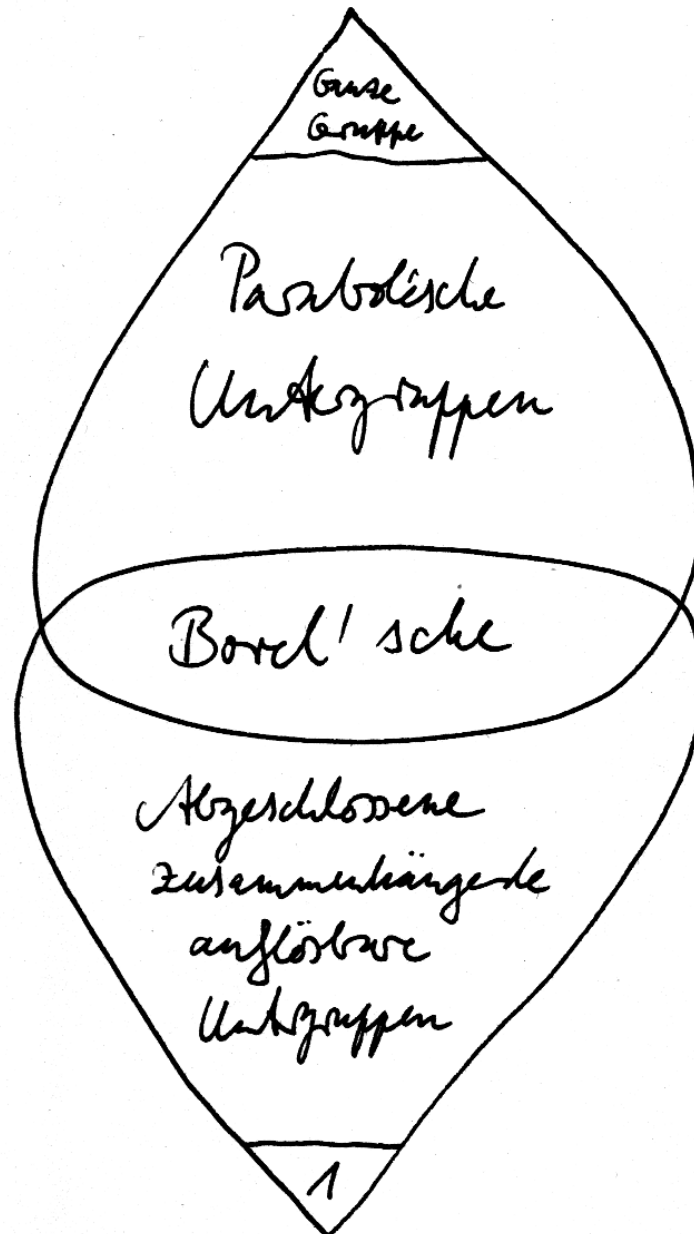 Ganze
Gruppe
Parabolische
Untergruppen
Borel'sche
Abgeschlossene
zusammenhängende
auflösbare
Untergruppen
1